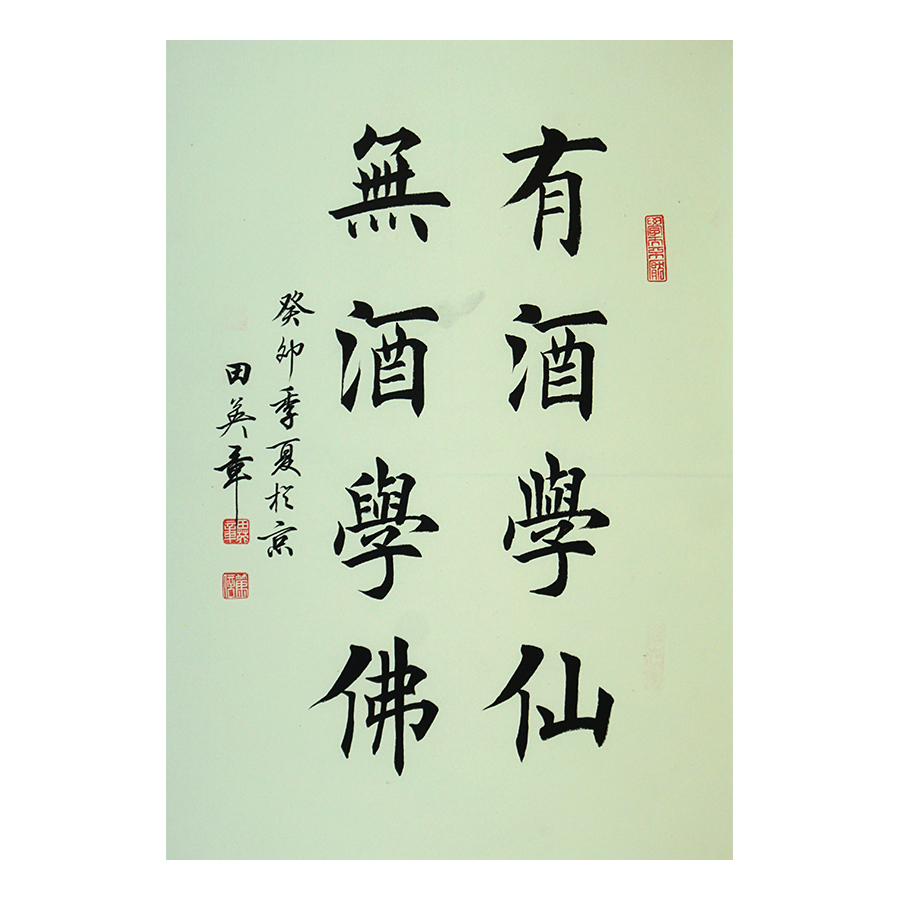 有酒學仙
無酒學佛
癸卯季夏於京
田英章